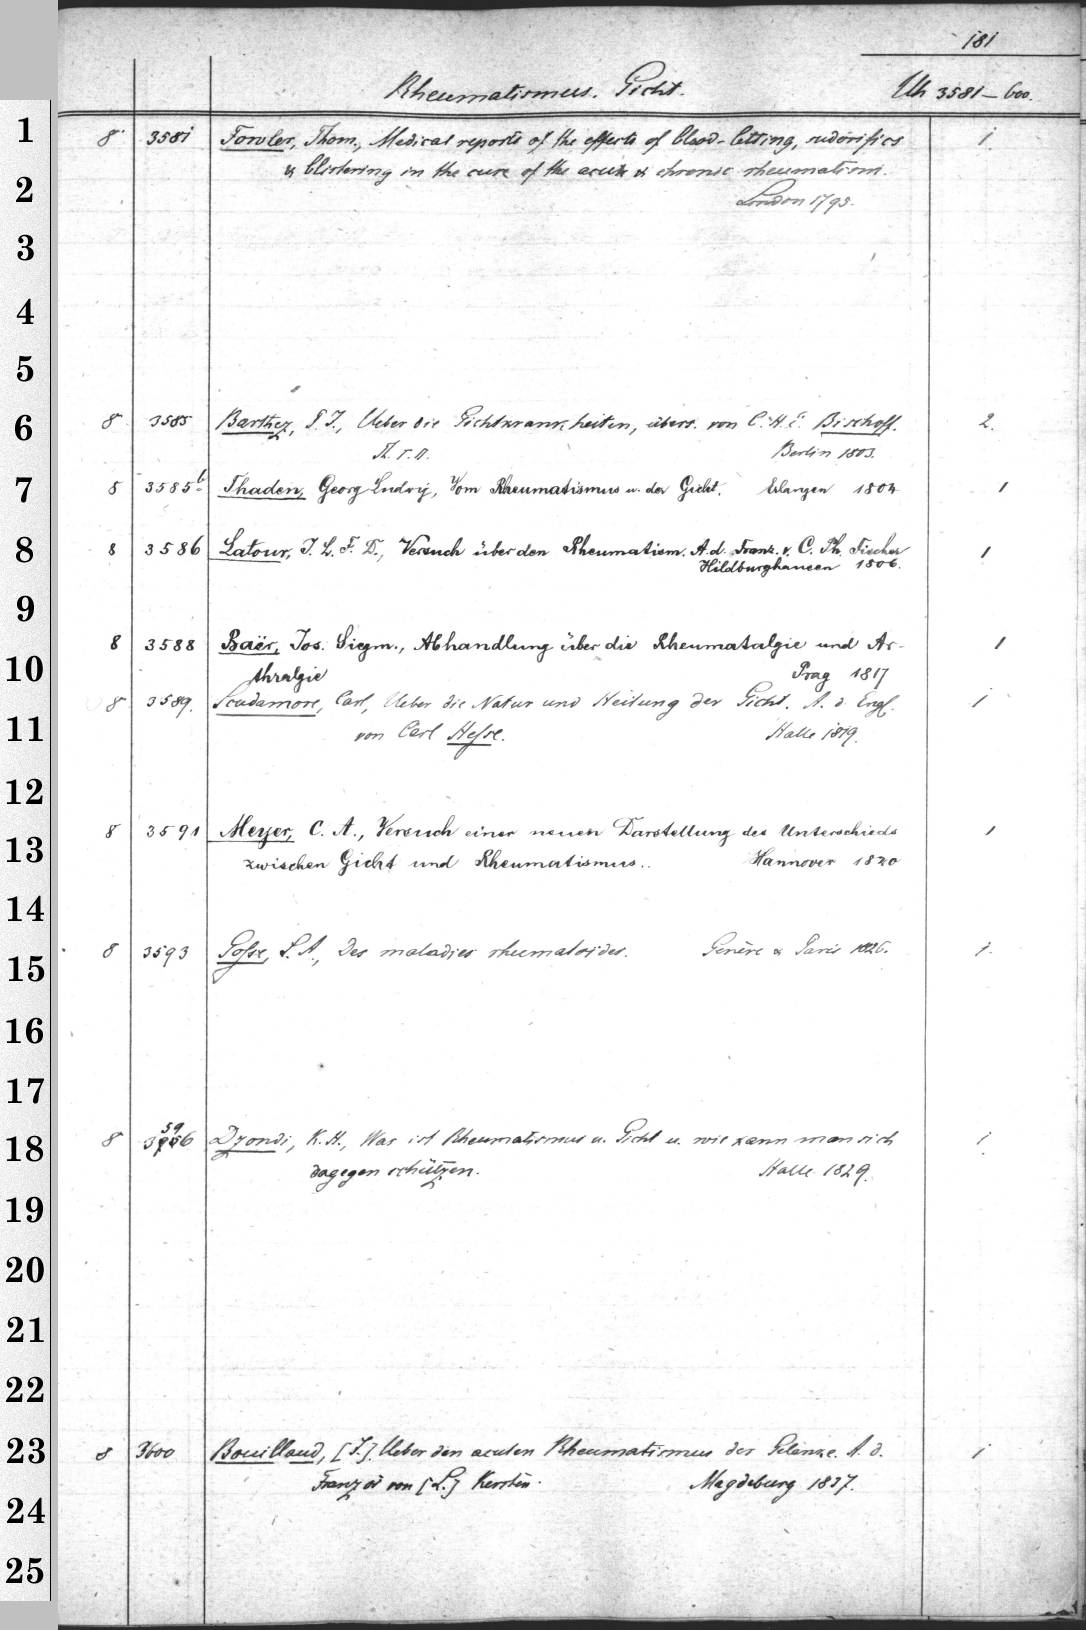 181
Rheumatismus. Gicht. Uh 3581–600.
1
8° 3581 Fowler, Thom., Medical reports of the effects of blood-letting, sudorifics 1
2
& blistering in the cure of the acute & chronic rheumatism.
London 1795.
3
4
5
6
8 3585 Barthez, P. J., Ueber die Gichtkrankheiten, übers. von C. H. E. Bischoff. 2.
Th. I. II. Berlin 1803.
7
8 3585b Thaden, Georg Ludwig, Vom Rheumatismus u. der Gicht. Erlangen 1804 1
8
8 3586 Latour, J. L. F. D., Versuch über den Rheumatism. A. d. Franz. v. C. Ph. Fischer 1
Hildburghausen 1806.
9
8 3588 Baër, Jos. Siegm., Abhandlung über die Rheumatalgie und Ar- 1
10
thralgie Prag 1817
8 3589. Scudamore, Carl, Ueber die Natur und Heilung der Gicht. A. d. Engl. 1
11
von Carl Hesse. Halle 1819.
12
8 3591 Meyer, C. A., Versuch einer neuen Darstellung des Unterschieds 1
13
zwischen Gicht und Rheumatismus.. Hannover 1820
14
8 3593 Gosse, L. A., Des maladies rhumatoïdes. Genève & Paris 1826. 1.
15
16
17
18
8 3596 Dzondi, K. H., Was ist Rheumatismus u. Gicht u. wie kann man sich 1
dagegen schützen. Halle 1829.
19
20
21
22
23
8 3600 Bouillaud, [J.] Ueber den acuten Rheumatismus der Gelenke. A. d. 1
Franz von [L.] Kersten. Magdeburg 1837.
24
25